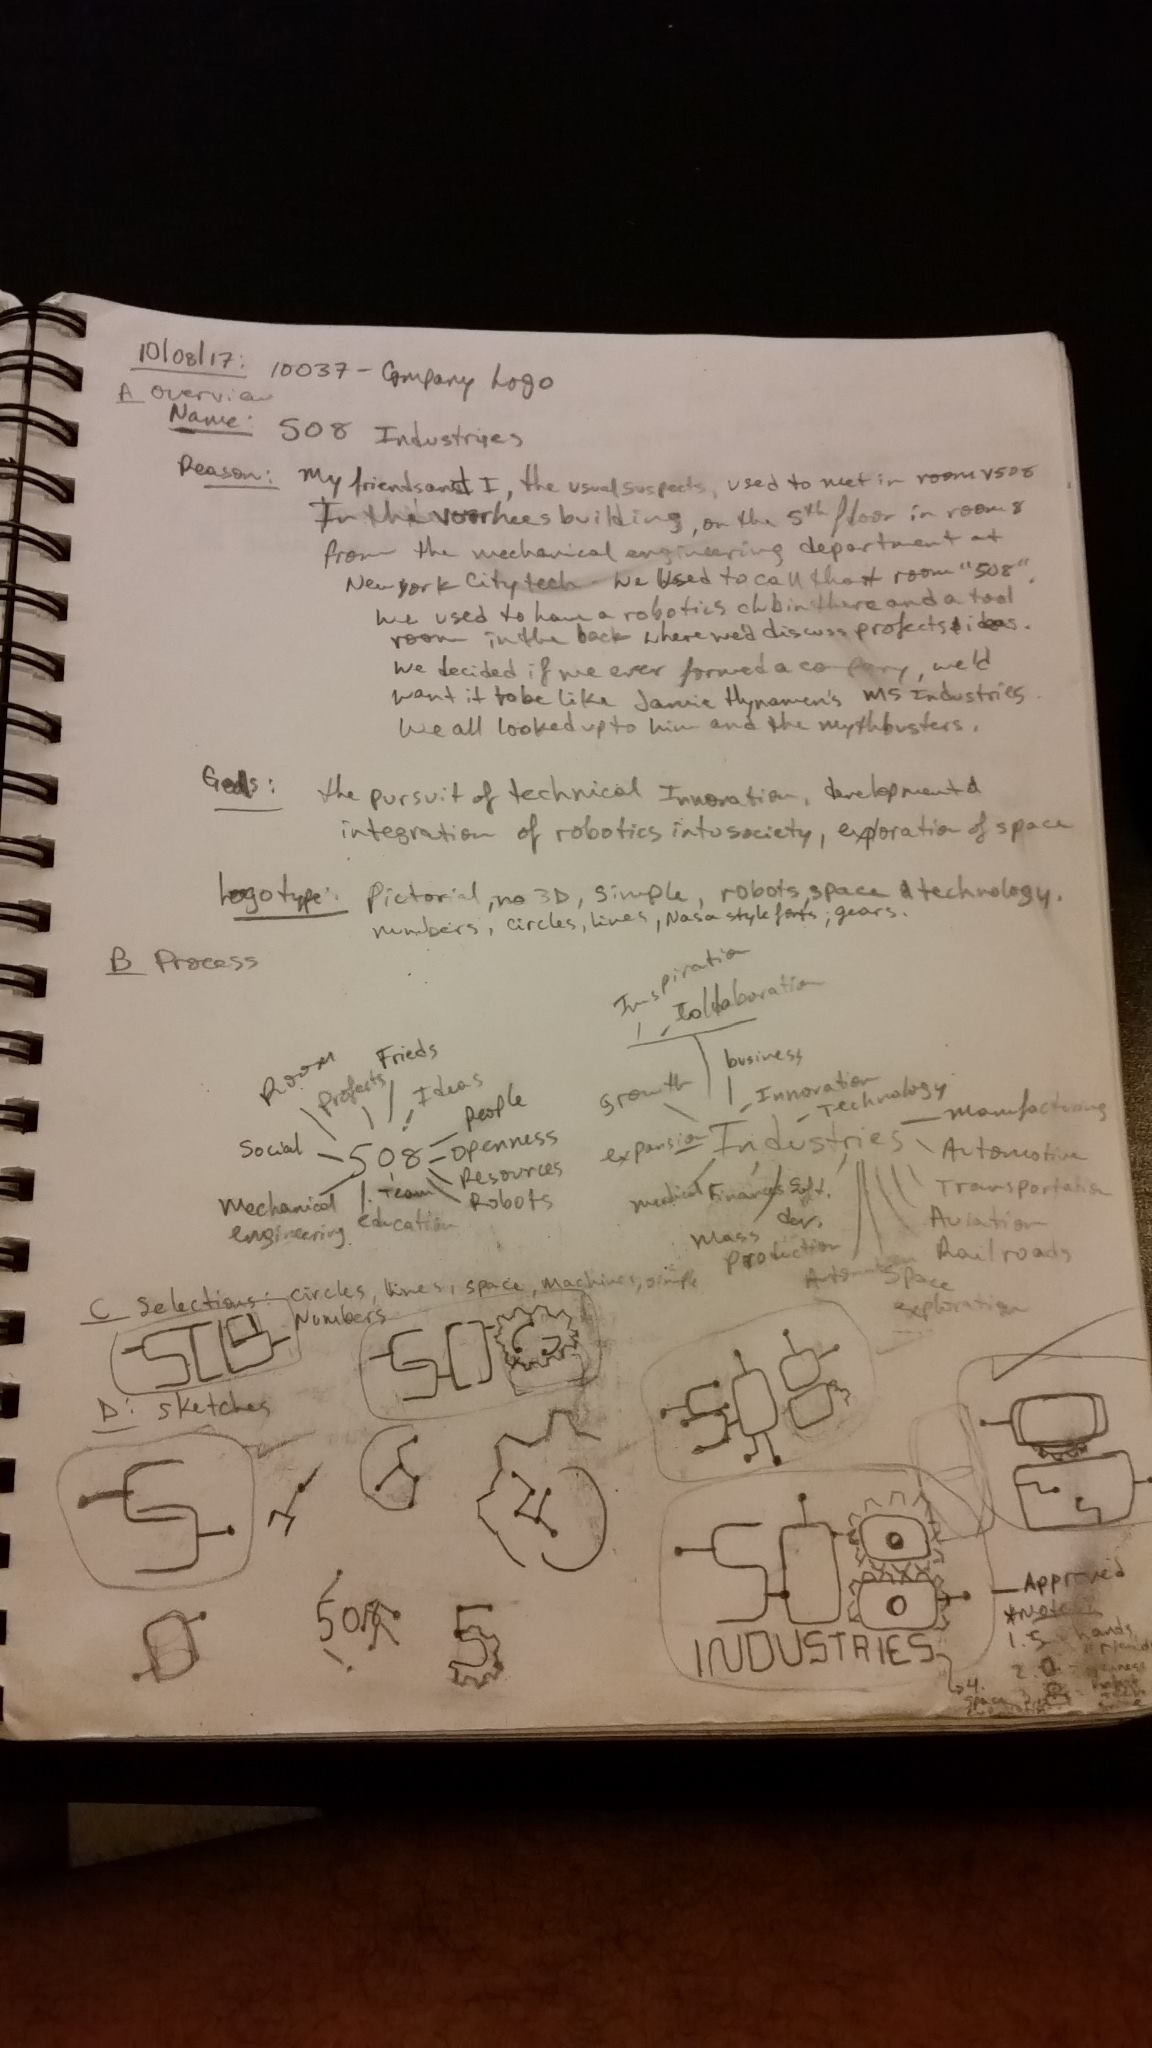 10/08/17: 10037 - Company Logo
A Overview
Name: 508 Industries
Reason: My friends and I, the usual suspects, used to met in room v508
In the voorhees building, on the 5th floor in room 8
from the mechanical engineering department at
New York City tech we used to call that room "508".
we used to have a robotics club in there and a tool
room in the back where we'd discuss projects & ideas.
we decided if we ever formed a company, we'd
want it to be like Jamie Hynamen's M5 Industries.
We all looked up to him and the mythbusters.
Goals: the pursuit of technical Innovation, development &
integration of robotics into society, exploration of space
Logo type: Pictorial, no 3D, simple, robots, space & technology.
numbers, circles, lines, Nasa style fonts, gears.
B Process
Inspiration
Collaboration
Room
Frieds
Projects
Ideas
People
Social
508
Openness
Resources
Robots
Mechanical
engineering
Team
education
business
Growth
Innovation
Technology
Manufacturing
expansion
Industries
Automotive
Transportation
Aviation
Railroads
medical
Finances
Soft.
dev.
Mass
production
Automation
Space
exploration
C Selections: circles, lines, space, machines, simple
Numbers
508
508
D: sketches
508
S
508
5
508
INDUSTRIES
Approved
1. 5 hands,
2. 0 - openness
4.
space